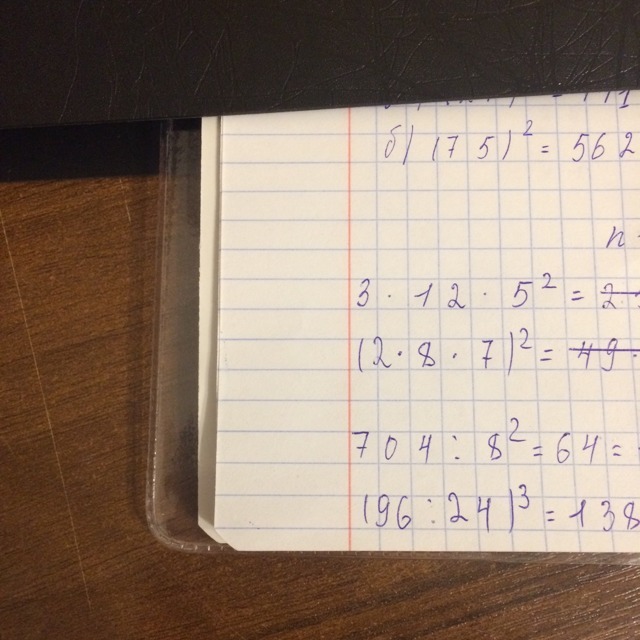 б) (75)² = 562
n
3 · 12 · 5² = 2
(2 · 8 · 7)² = 49
704 : 8² = 64 =
(96 : 24)³ = 138